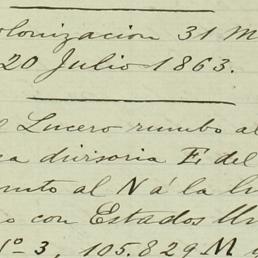 olonizacion 31 M
20 Julio 1863.
Lucero rumbo al
ea divisoria E. del
al N á la lí
con Estados Un
Nº 3, 105.829 M y